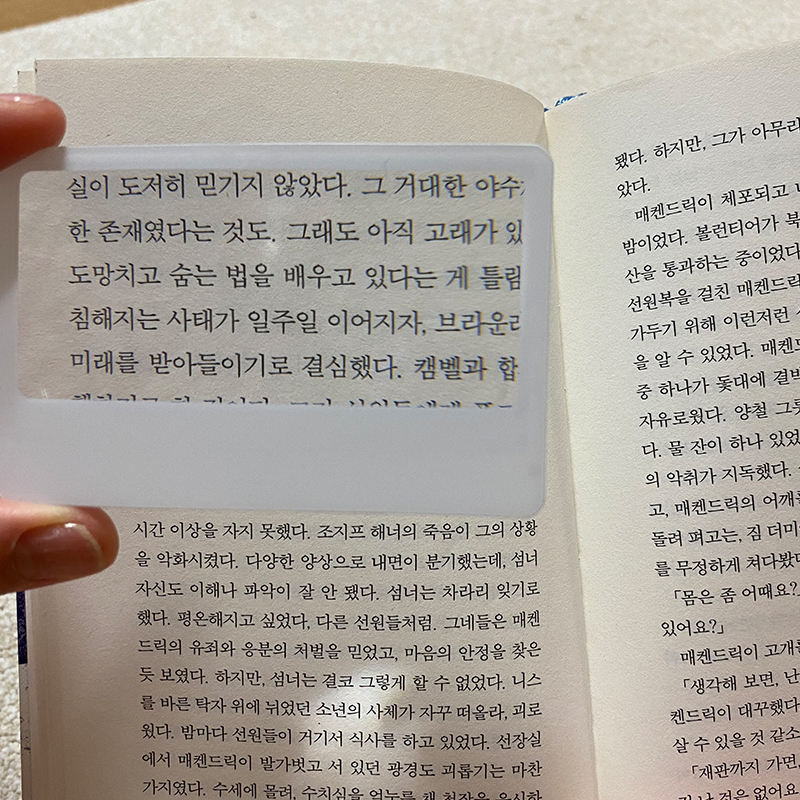 실이 도저히 믿기지 않았다. 그 거대한 야수
한 존재였다는 것도. 그래도 아직 고래가 있
도망치고 숨는 법을 배우고 있다는 게 틀림
침해지는 사태가 일주일 이어지자, 브라운
미래를 받아들이기로 결심했다. 캠벨과 합
시간 이상을 자지 못했다. 조지프 해너의 죽음이 그의 상황
을 악화시켰다. 다양한 양상으로 내면이 분기했는데, 섬너
자신도 이해나 파악이 잘 안 됐다. 섬너는 차라리 잊기로
했다. 평온해지고 싶었다, 다른 선원들처럼. 그네들은 매켄
드릭의 유죄와 응분의 처벌을 믿었고, 마음의 안정을 찾은
듯 보였다. 하지만, 섬너는 결코 그렇게 할 수 없었다. 니스
를 바른 탁자 위에 뉘었던 소년의 사체가 자꾸 떠올라, 괴로
웠다. 밤마다 선원들이 거기서 식사를 하고 있었다. 선장실
에서 매켄드릭이 발가벗고 서 있던 광경도 괴롭기는 마찬
가지였다. 수세에 몰려, 수치심을 억누를 채 천장을 응시하
됐다. 하지만, 그가 아무리
았다.
매켄드릭이 체포되고 나
밤이었다. 볼런티어가 북
산을 통과하는 중이었다
선원복을 걸친 매켄드릭
가두기 위해 이런저런
을 알 수 있었다. 매켄드
중 하나가 돛대에 결박
자유로웠다. 양철 그릇
다. 물 잔이 하나 있었
의 악취가 지독했다.
고, 매켄드릭의 어깨를
돌려 펴고는, 짐 더미
를 무정하게 쳐다봤다
「몸은 좀 어때요?
있어요?」
매켄드릭이 고개를
「생각해 보면, 난
켄드릭이 대꾸했다
살 수 있을 것 같소
「재판까지 가면,
것은 없어요